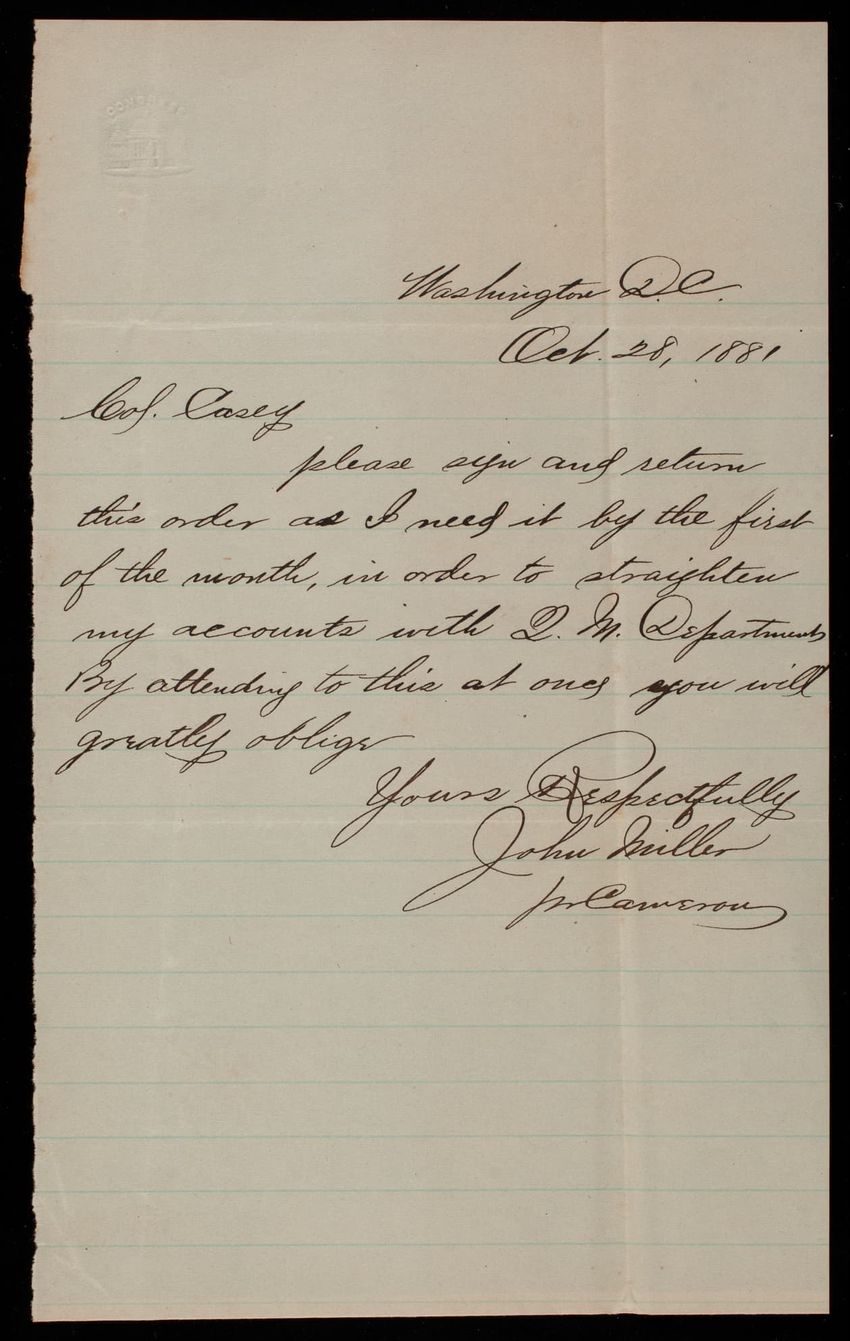 CONGRESS
Washington D.C.
Oct. 28, 1881
Col. Casey
please sign and return
this order as I need it by the first
of the month, in order to straighten
my accounts with Q. M. Department
By attending to this at once you will
greatly oblige
Yours Respectfully
John Miller
pr Cameron